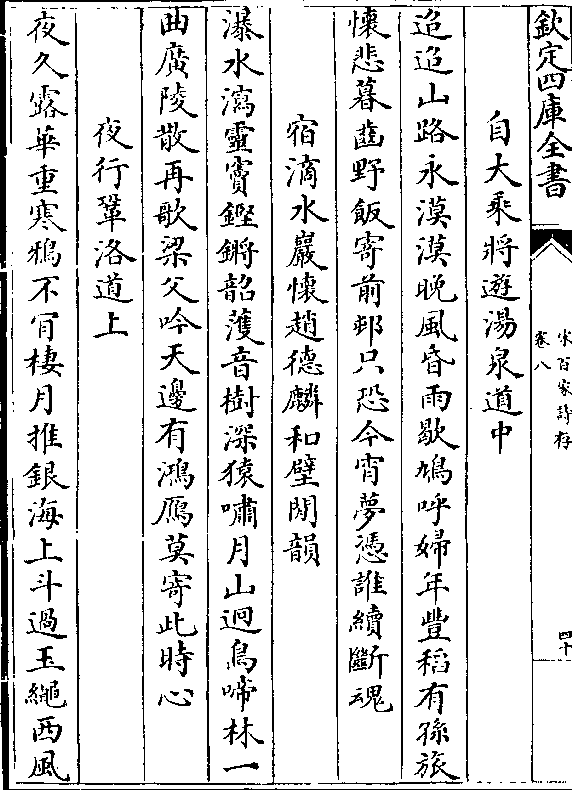 欽定四庫全書
宋百家詩存
卷八
四十
自大乘將遊湯泉道中
迢迢山路永漠漠晚風昏雨歇鳩呼婦年豐稻有孫旅
懷悲暮齒野飯寄前邨只恐今宵夢憑誰續斷魂
宿滴水巖懷趙德麟和壁間韻
瀑水瀉靈竇鏗鏘韶頀音樹深猿嘯月山迥鳥啼林一
曲廣陵散再歌梁父吟天邊有鴻鴈莫寄此時心
夜行鞏洛道上
夜久露華重寒鴉不肯棲月推銀海上斗過玉繩西風